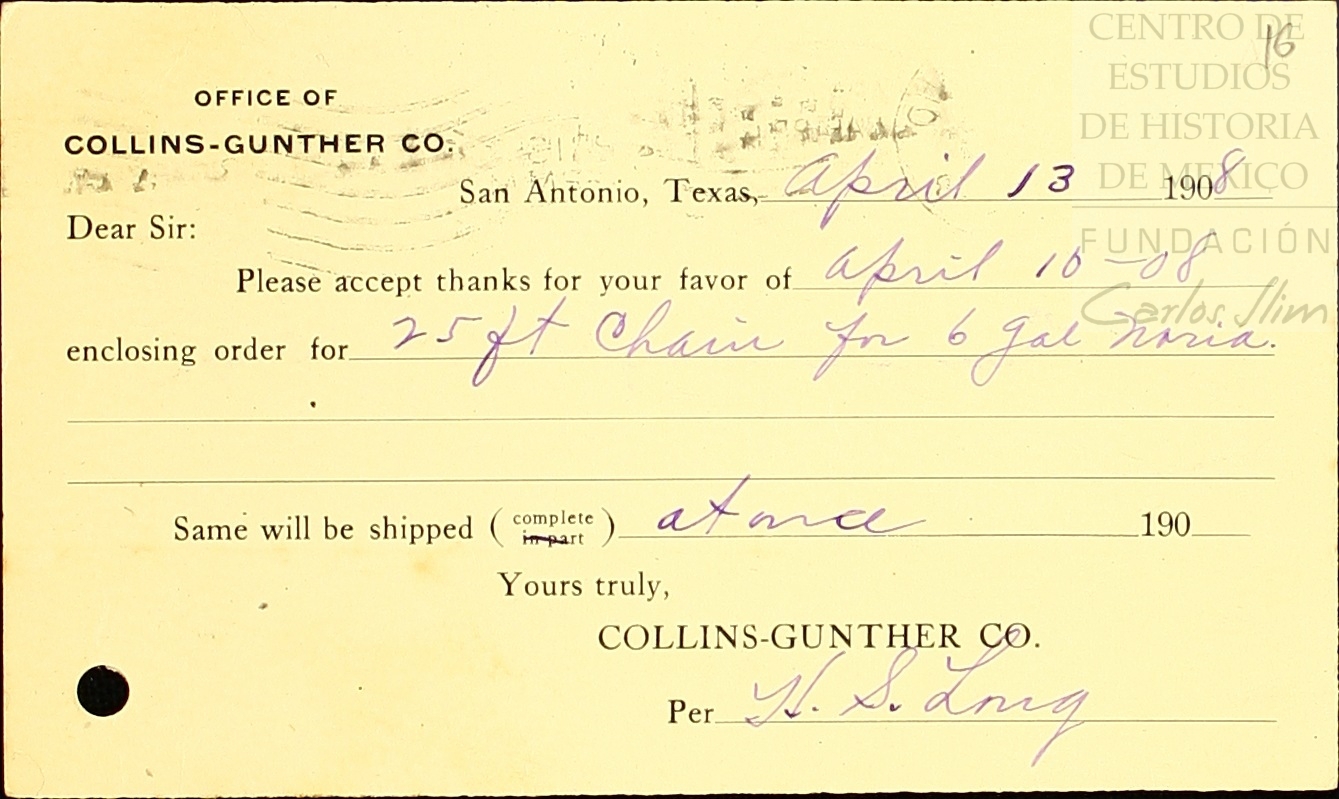 CENTRO DE
16
ESTUDIOS
DE HISTORIA
DE MEXICO
FUNDACIÓN
Carlos Slim
OFFICE OF
COLLINS-GUNTHER CO.
San Antonio, Texas, April 13 1908
Dear Sir:
Please accept thanks for your favor of April 10-08
enclosing order for 25 ft Chain for 6 gal noria.
Same will be shipped (complete in part) at once 190
Yours truly,
COLLINS-GUNTHER CO.
Per H. S. Long